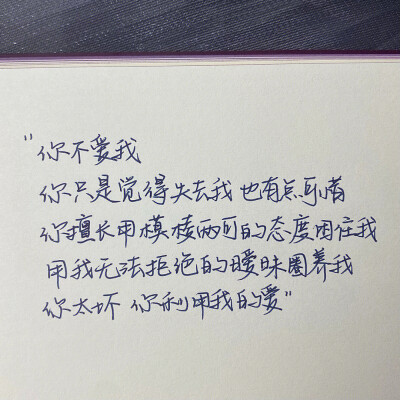 "你不爱我
你只是觉得失去我 也有点可惜
你擅长用模棱两可的态度困住我
用我无法拒绝的暧昧圈养我
你太坏 你利用我的爱"